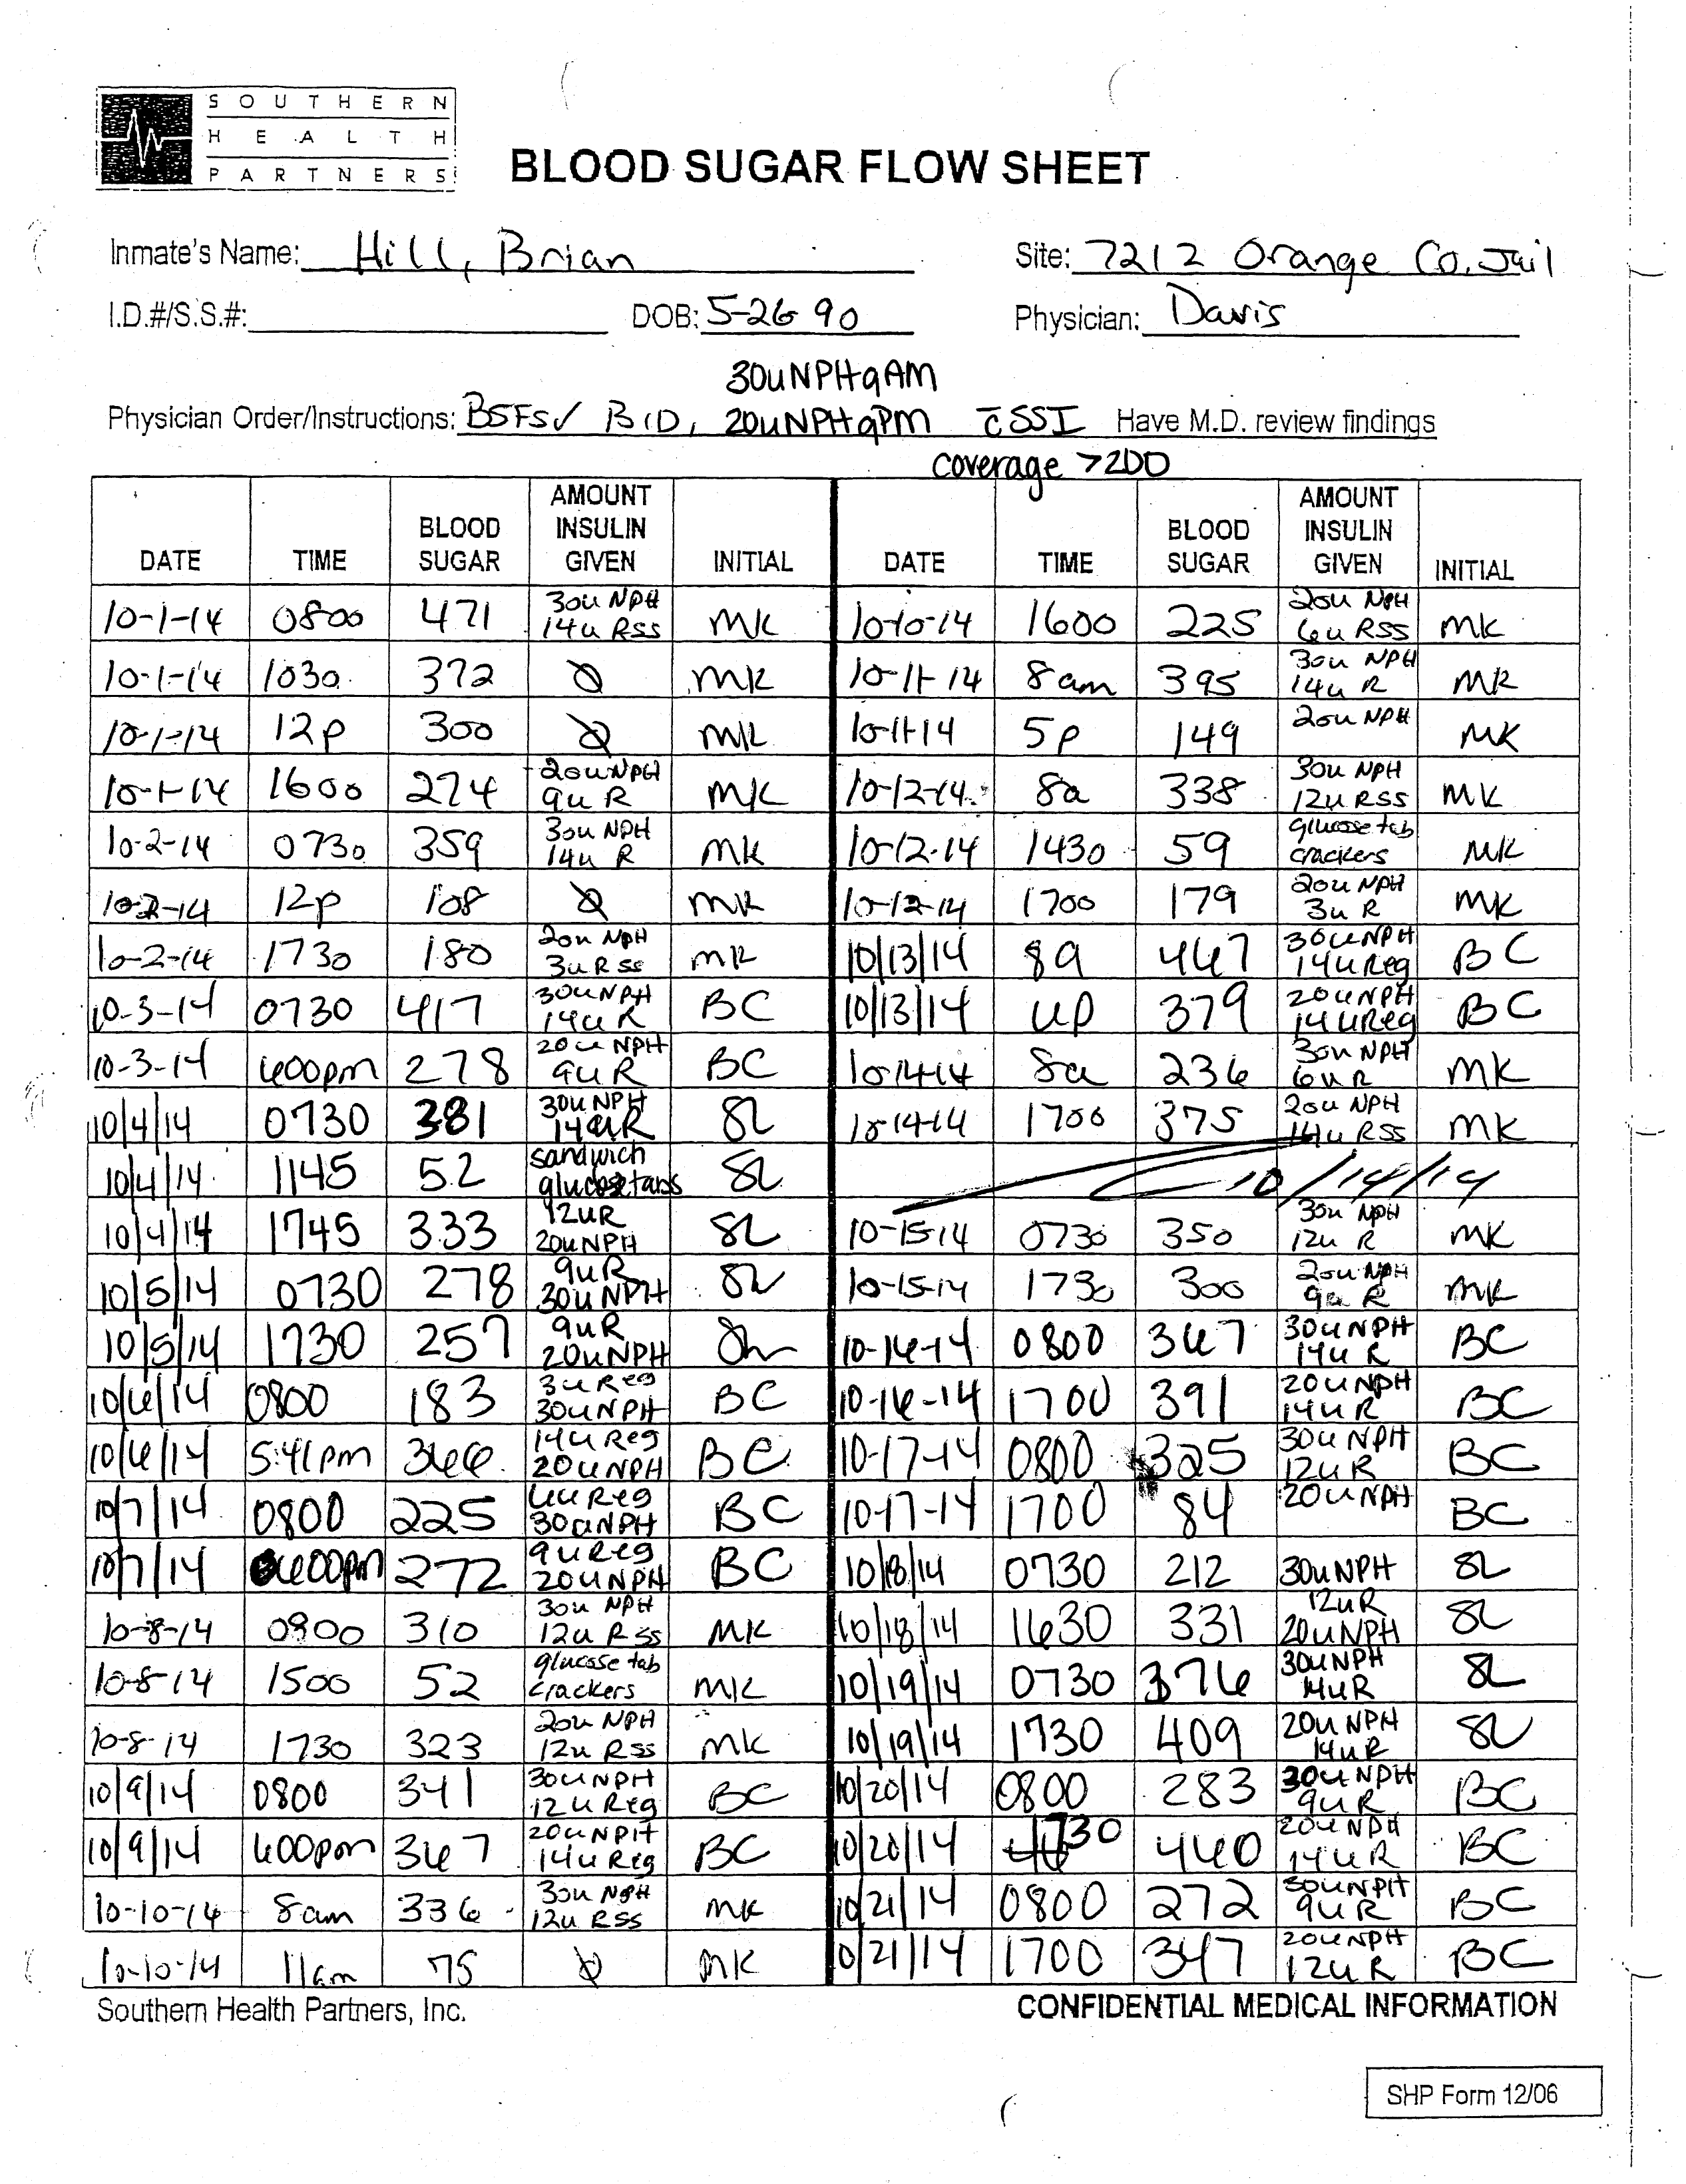 SOUTHERN
HEALTH
PARTNERS
BLOOD SUGAR FLOW SHEET
Inmate's Name: Hill, Brian Site: 7212 Orange Co. Jail
I.D.#/S.S.#: DOB: 5-26-90 Physician: Davis
30u NPH qAM
Physician Order/Instructions: BSFS✓ BID, 20u NPH qPM c̄ SSI Have M.D. review findings
coverage >200
DATE TIME BLOOD SUGAR AMOUNT INSULIN GIVEN INITIAL DATE TIME BLOOD SUGAR AMOUNT INSULIN GIVEN INITIAL
10-1-14 0800 471 30u NPH 14u RSS MK 10-10-14 1600 225 20u NPH 6u RSS MK
10-1-14 1030 372 Ø MK 10-11-14 8am 395 30u NPH 14u R MK
10-1-14 12p 300 Ø MK 10-11-14 5p 149 20u NPH MK
10-1-14 1600 274 20u NPH 9u R MK 10-12-14 8a 338 30u NPH 12u RSS MK
10-2-14 0730 359 30u NPH 14u R MK 10-12-14 1430 59 glucose tab crackers MK
10-2-14 12p 108 Ø MK 10-12-14 1700 179 20u NPH 3u R MK
10-2-14 1730 180 20u NPH 3u R SS MK 10/13/14 8a 467 30u NPH 14u Reg BC
10-3-14 0730 417 30u NPH 14u R BC 10/13/14 4p 379 20u NPH 14u Reg BC
10-3-14 600pm 278 20u NPH 9u R BC 10-14-14 8a 236 30u NPH 6u R MK
10/4/14 0730 381 30u NPH 14u R SL 10-14-14 1700 375 20u NPH 14u RSS MK
10/4/14 1145 52 sandwich glucose tabs SL 10/14/14
10/4/14 1745 333 12u R 20u NPH SL 10-15-14 0730 350 30u NPH 12u R MK
10/5/14 0730 278 9u R 30u NPH SL 10-15-14 1730 300 20u NPH 9u R MK
10/5/14 1730 257 9u R 20u NPH 10-16-14 0800 367 30u NPH 14u R BC
10/6/14 0800 183 3u Reg 30u NPH BC 10-16-14 1700 391 20u NPH 14u R BC
10/6/14 5:41pm 366 14u Reg 20u NPH BC 10-17-14 0800 325 30u NPH 12u R BC
10/7/14 0800 225 6u Reg 30u NPH BC 10-17-14 1700 84 20u NPH BC
10/7/14 600pm 272 9u Reg 20u NPH BC 10/18/14 0730 212 30u NPH SL
10-8-14 0800 310 30u NPH 12u R SS MK 10/18/14 1630 331 12u R 20u NPH SL
10-8-14 1500 52 glucose tab crackers MK 10/19/14 0730 376 30u NPH 14u R SL
10-8-14 1730 323 20u NPH 12u RSS MK 10/19/14 1730 409 20u NPH 14u R SL
10/9/14 0800 341 30u NPH 12u Reg BC 10/20/14 0800 283 30u NPH 9u R BC
10/9/14 600pm 367 20u NPH 14u Reg BC 10/20/14 1730 440 20u NPH 14u R BC
10-10-14 8am 336 30u NPH 12u RSS MK 10/21/14 0800 272 30u NPH 9u R BC
10-10-14 11am 75 Ø MK 10/21/14 1700 347 20u NPH 12u R BC
Southern Health Partners, Inc. CONFIDENTIAL MEDICAL INFORMATION
SHP Form 12/06